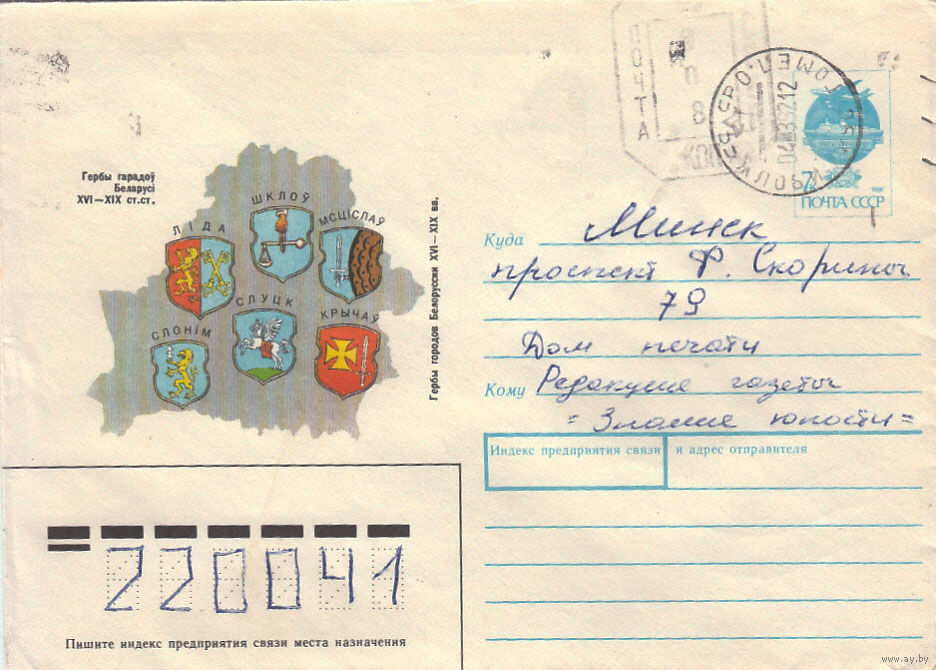 Гербы гарадоў
Беларусі
XVI—XIX ст.ст.
ШКЛОЎ
МСЦІСЛАЎ
ЛІДА
СЛУЦК
КРЫЧАЎ
СЛОНІМ
Гербы городов Белоруссии XVI—XIX вв.
ПОЧТА
8
КОП
7к
ПОЧТА СССР
Куда Минск
проспект Ф. Скорины
79
Дом печати
Кому Редакция газеты
"Знамя юности"
Индекс предприятия связи и адрес отправителя
220041
Пишите индекс предприятия связи места назначения
www.ay.by